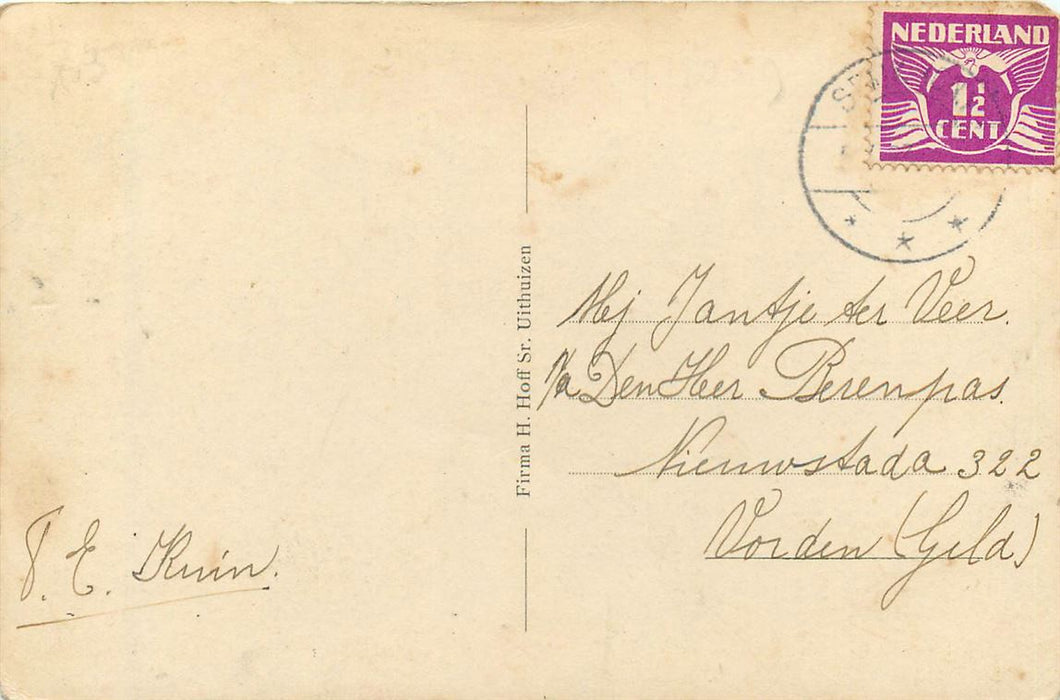 NEDERLAND
1½
CENT
Mej Jantje ter Veer.
p/a Den Heer Berenpas.
Nieuwstada 322
Vorden (Geld)
Firma H. Hoff Sr. Uithuizen
E. Kuin.